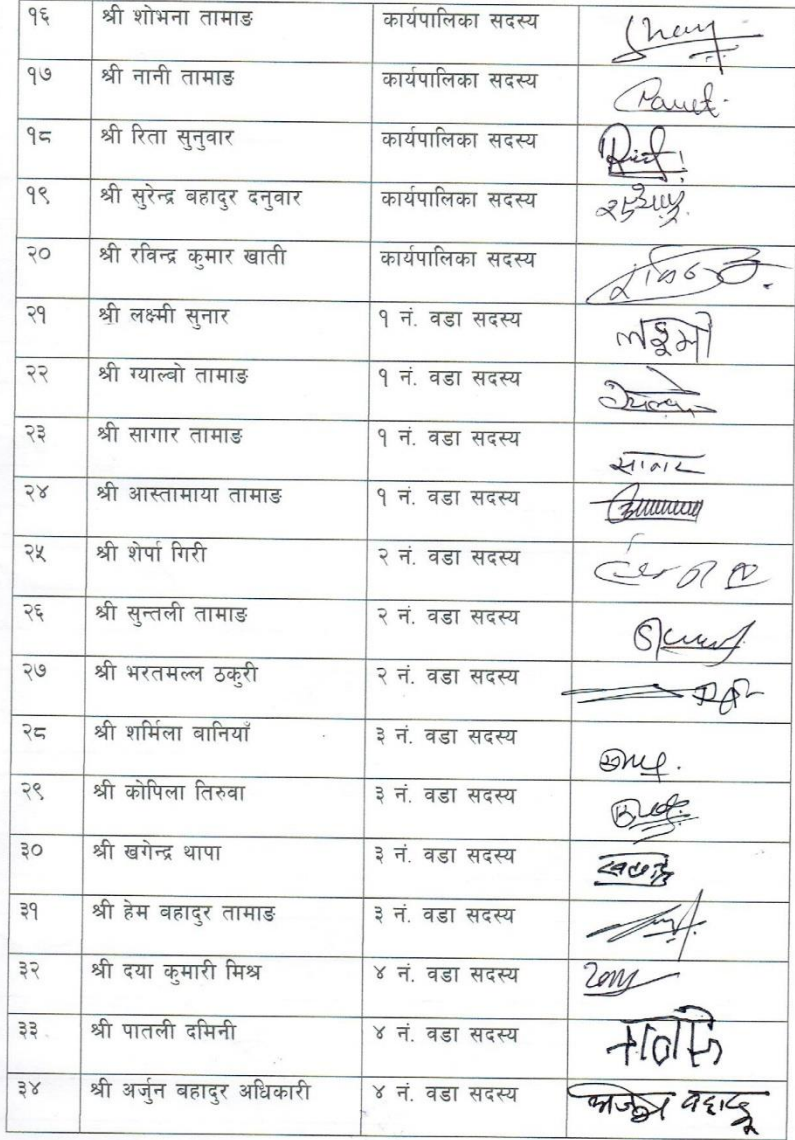 १६ श्री शोभना तामाङ कार्यपालिका सदस्य
१७ श्री नानी तामाङ कार्यपालिका सदस्य
१८ श्री रिता सुनुवार कार्यपालिका सदस्य
१९ श्री सुरेन्द्र बहादुर दनुवार कार्यपालिका सदस्य
२० श्री रविन्द्र कुमार खाती कार्यपालिका सदस्य
२१ श्री लक्ष्मी सुनार १ नं. वडा सदस्य
२२ श्री ग्याल्बो तामाङ १ नं. वडा सदस्य
२३ श्री सागार तामाङ १ नं. वडा सदस्य
२४ श्री आस्तामाया तामाङ १ नं. वडा सदस्य
२५ श्री शेर्पा गिरी २ नं. वडा सदस्य
२६ श्री सुन्तली तामाङ २ नं. वडा सदस्य
२७ श्री भरतमल्ल ठकुरी २ नं. वडा सदस्य
२८ श्री शर्मिला बानियाँ ३ नं. वडा सदस्य
२९ श्री कोपिला तिरुवा ३ नं. वडा सदस्य
३० श्री खगेन्द्र थापा ३ नं. वडा सदस्य
३१ श्री हेम बहादुर तामाङ ३ नं. वडा सदस्य
३२ श्री दया कुमारी मिश्र ४ नं. वडा सदस्य
३३ श्री पातली दमिनी ४ नं. वडा सदस्य
३४ श्री अर्जुन बहादुर अधिकारी ४ नं. वडा सदस्य